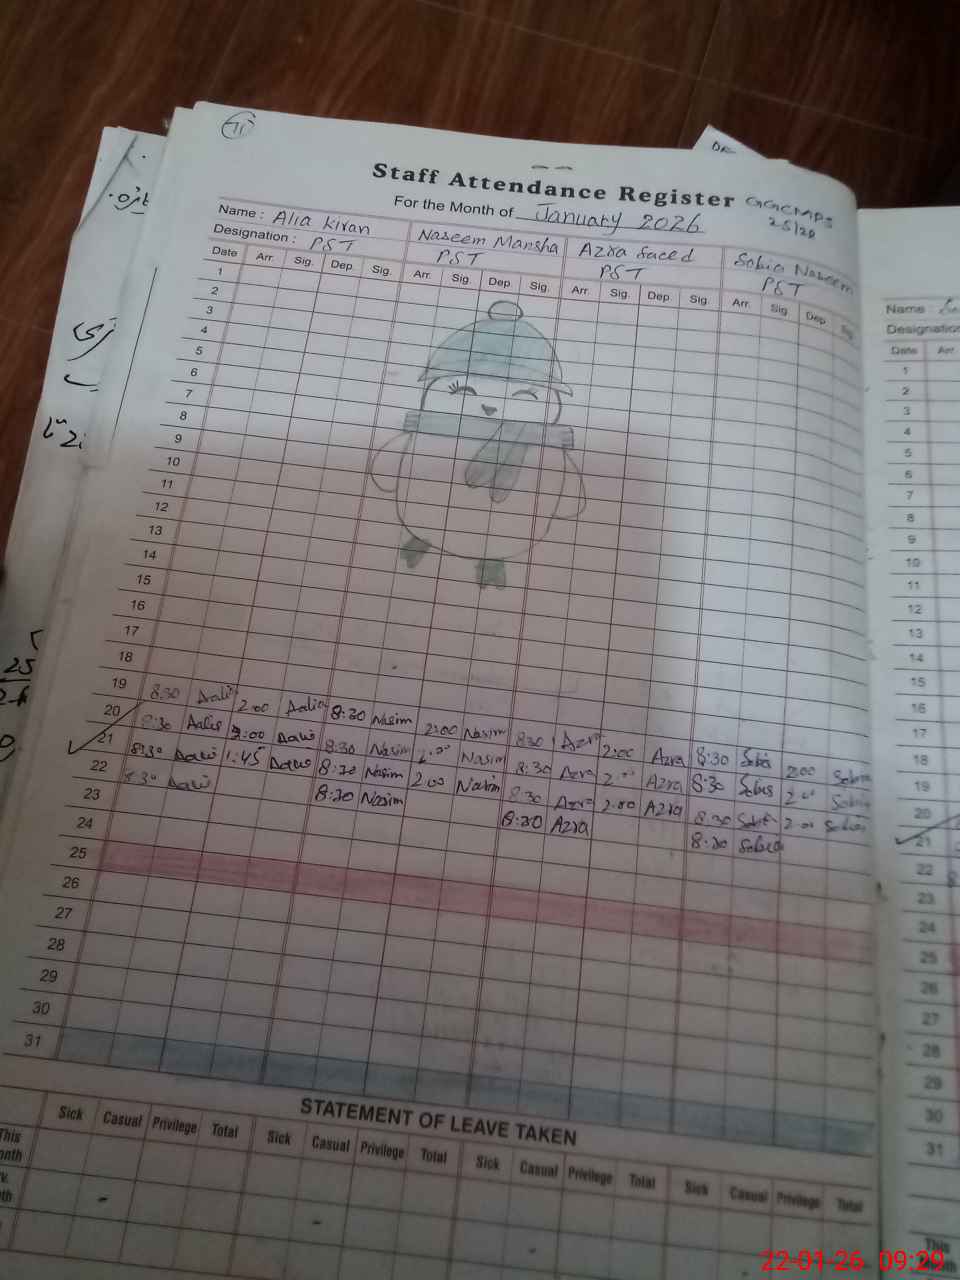 11
Staff Attendance Register
GGCMPS
25/20
For the Month of January 2026
Name : Alia Kiran Naseem Mansha Azra Saeed Sobia Naseem
Designation : PST PST PST PST
Date Arr. Sig. Dep. Sig. Arr. Sig. Dep. Sig. Arr. Sig. Dep. Sig. Arr. Sig. Dep. Sig.
1
2
3
4
5
6
7
8
9
10
11
12
13
14
15
16
17
18
19 8:30 Aalia 2:00 Aalia 8:30 Nasim 2:00 Nasim 8:30 Azra 2:00 Azra 8:30 Sobia 2:00 Sobia
20 8:30 Aalia 2:00 8:30 Nasim 2:00 Nasim 8:30 Azra 2:00 Azra 8:30 Sobia 2:00 Sobia
21 8:30 1:45 8:30 Nasim 2:00 Nasim 8:30 Azra 2:00 Azra 8:30 Sobia 2:00 Sobia
22 8:30 8:30 Nasim 8:30 Azra 8:30 Sobia
23
24
25
26
27
28
29
30
31
STATEMENT OF LEAVE TAKEN
Sick Casual Privilege Total Sick Casual Privilege Total Sick Casual Privilege Total Sick Casual Privilege Total
This
Name :
Designation
Date Arr.
1
2
3
4
5
6
7
8
9
10
11
12
13
14
15
16
17
18
19
20
21
22
23
24
25
26
27
28
29
30
31
This
22-01-26 09:29